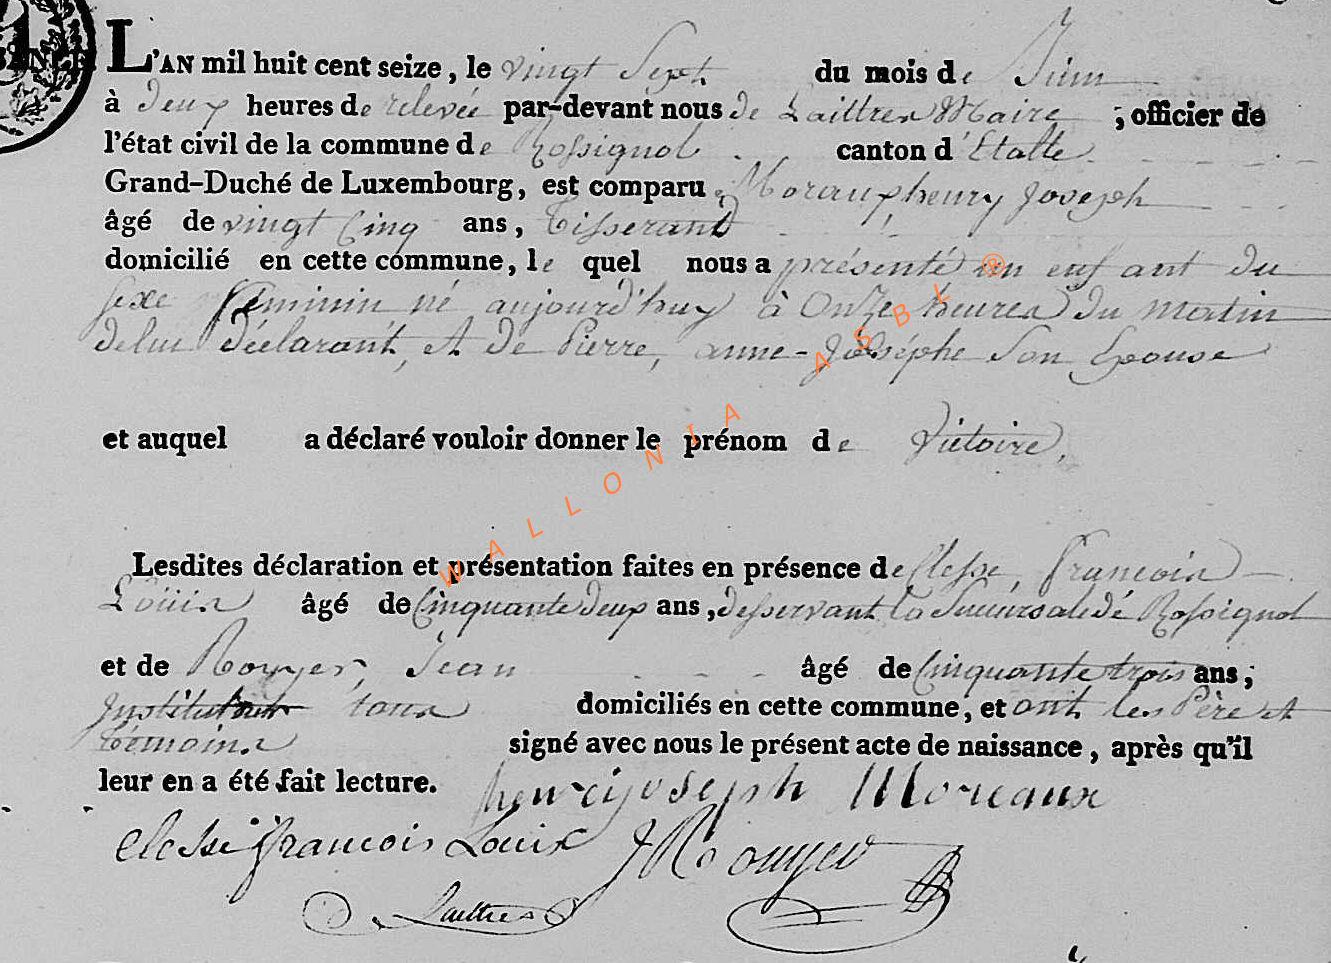 L'AN mil huit cent seize, le vingt Sept du mois de Juin
à deux heures de relevée par-devant nous de Laittres Maire ; officier de
l'état civil de la commune de Rossignol canton d'Etalle
Grand-Duché de Luxembourg, est comparu Moraux henry joseph
âgé de vingt Cinq ans, Tisserand
domicilié en cette commune, le quel nous a présenté un enfant du
sexe féminin né aujourd'huy à Onze heures du matin
de lui déclarant, et de Pierre, anne-Joséphe Son Epouse
et auquel a déclaré vouloir donner le prénom de Victoire,
Lesdites déclaration et présentation faites en présence de Clesse, francois
Loüis âgé de Cinquante deux ans, desservant la Succursale dé Rossignol
et de Rouyer, Jean âgé de Cinquante trois ans;
Instituteur tous domiciliés en cette commune, et ont les Père et
témoins signé avec nous le présent acte de naissance, après qu'il
leur en a été fait lecture. henrij joseph Moreaux
clesse francois Louis J Rouyer
De Laittres
WALLONIA ASBL ®